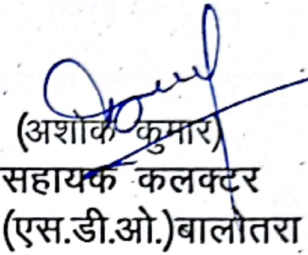 (अशोक कुमार)
सहायक कलक्टर
(एस.डी.ओ.)बालोतरा